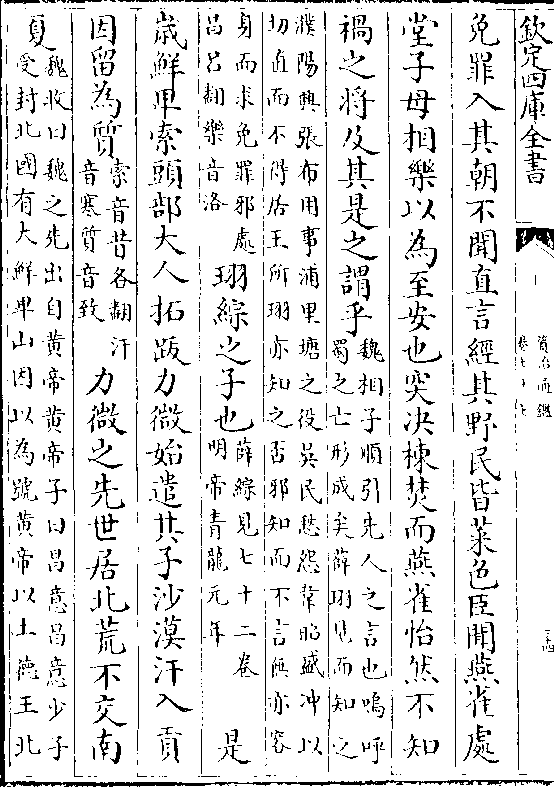 欽定四庫全書
資治通鑑
卷七十七
免罪入其朝不聞直言經其野民皆菜色臣聞燕雀處
堂子母相樂以為至安也突決棟焚而燕雀怡然不知
禍之將及其是之謂乎
魏相子順引先人之言也嗚呼
蜀之亡形成矣薛珝見而知之
濮陽興張布用事浦里塘之役吳民愁怨韋昭盛沖以
切直而不得居王所珝亦知之否邪知而不言無亦容
身而求免罪邪處
昌呂翻樂音洛
珝綜之子也
薛綜見七十二卷
明帝青龍元年
是
歲鮮卑索頭部大人拓跋力微始遣其子沙漠汗入貢
因留為質
索音昔各翻汗
音寒質音致
力微之先世居北荒不交南
夏
魏收曰魏之先出自黃帝黃帝子曰昌意昌意少子
受封北國有大鮮卑山因以為號黃帝以土德王北